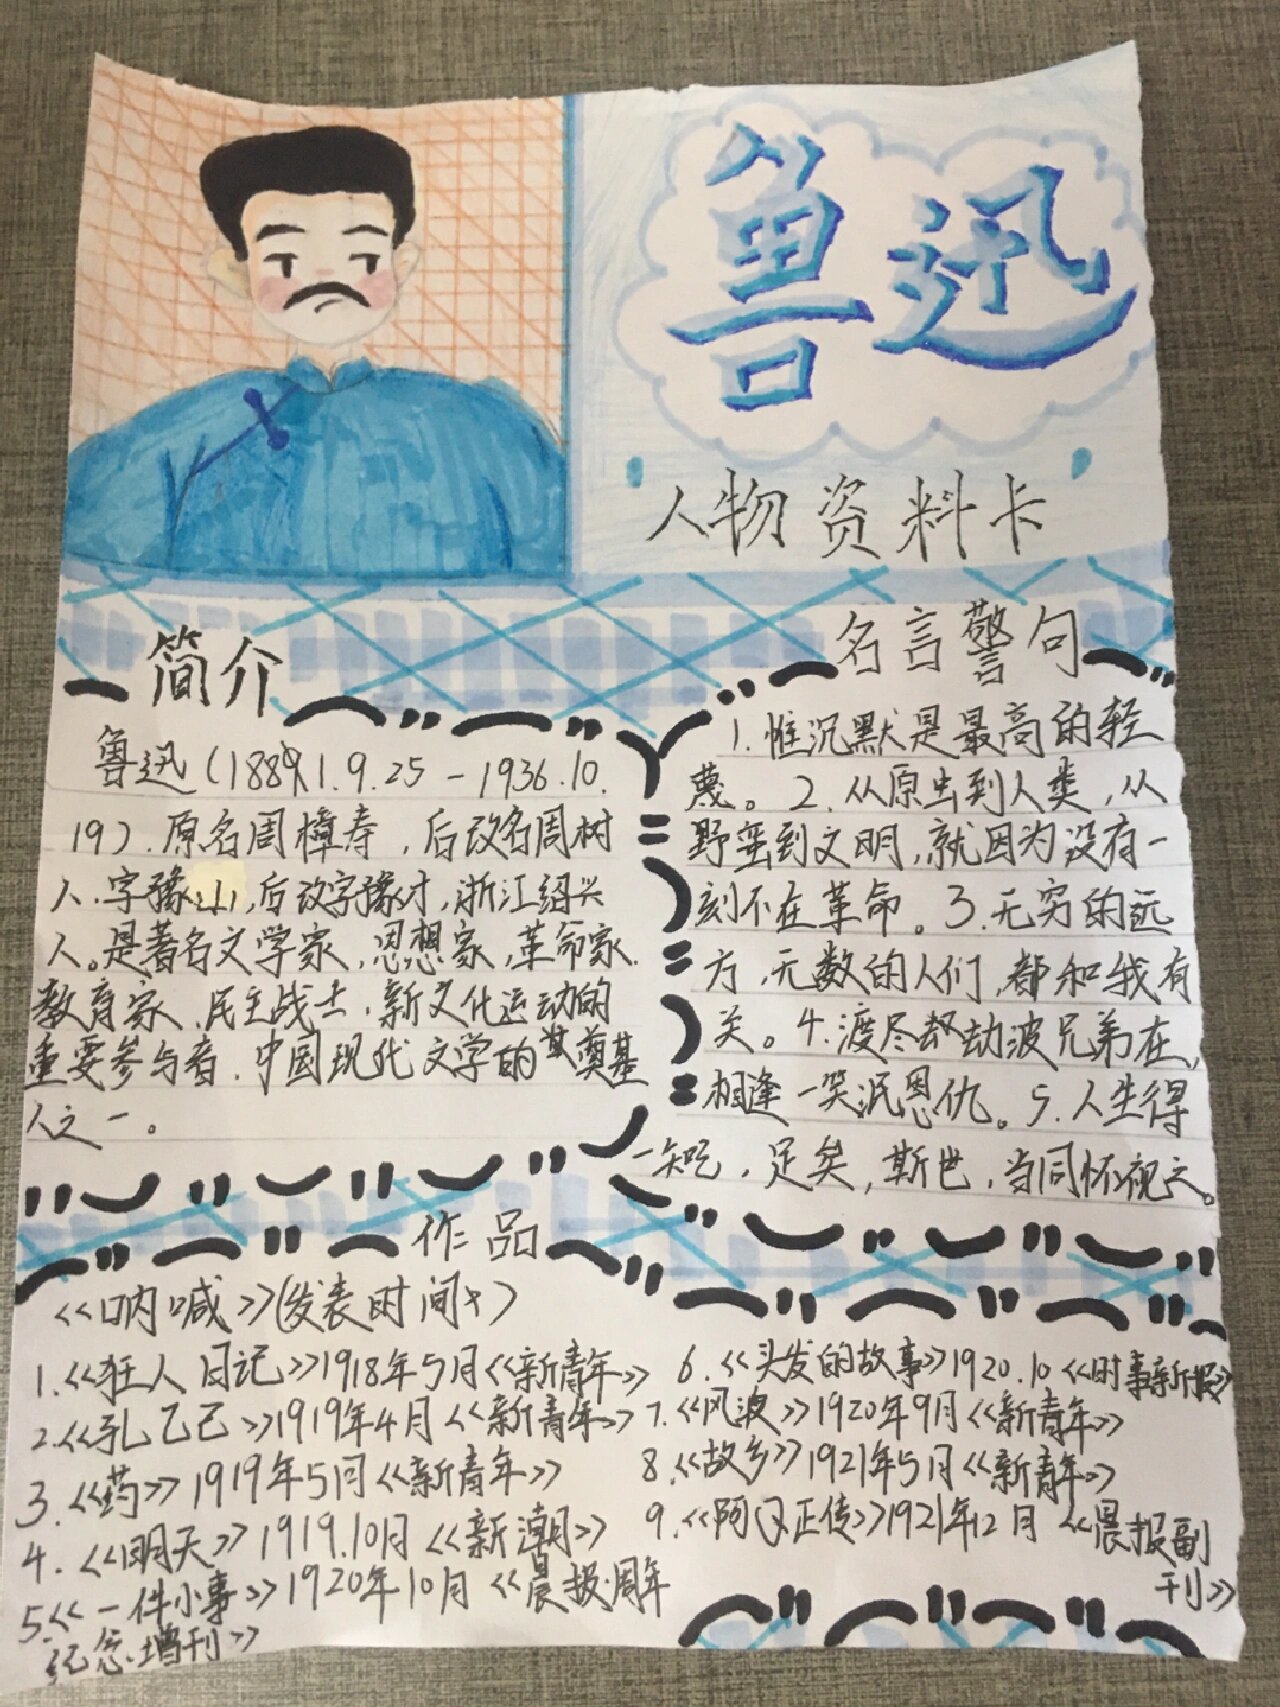 鲁迅
人物资料卡
简介
鲁迅(1881.9.25-1936.10.
19).原名周樟寿,后改名周树
人.字豫山,后改字豫才,浙江绍兴
人。是著名文学家,思想家,革命家.
教育家.民主战士,新文化运动的
重要参与者.中国现代文学的奠基
人之一。
名言警句
1.惟沉默是最高的轻
蔑。2.从原虫到人类,从
野蛮到文明,就因为没有一
刻不在革命。3.无穷的远
方,无数的人们,都和我有
关。4.渡尽劫波兄弟在,
相逢一笑泯恩仇。5.人生得
一知己,足矣,斯世,当同怀视之。
作品
<<呐喊>>(发表时间↓)
1.<<狂人日记>>1918年5月<<新青年>>
2.<<孔乙己>>1919年4月<<新青年>>
3.<<药>>1919年5月<<新青年>>
4.<<明天>>1919.10月<<新潮>>
5.<<一件小事>>1920年10月<<晨报·周年
纪念·增刊>>
6.<<头发的故事>>1920.10<<时事新报>>
7.<<风波>>1920年9月<<新青年>>
8.<<故乡>>1921年5月<<新青年>>
9.<<阿Q正传>>1921年12月<<晨报副
刊>>